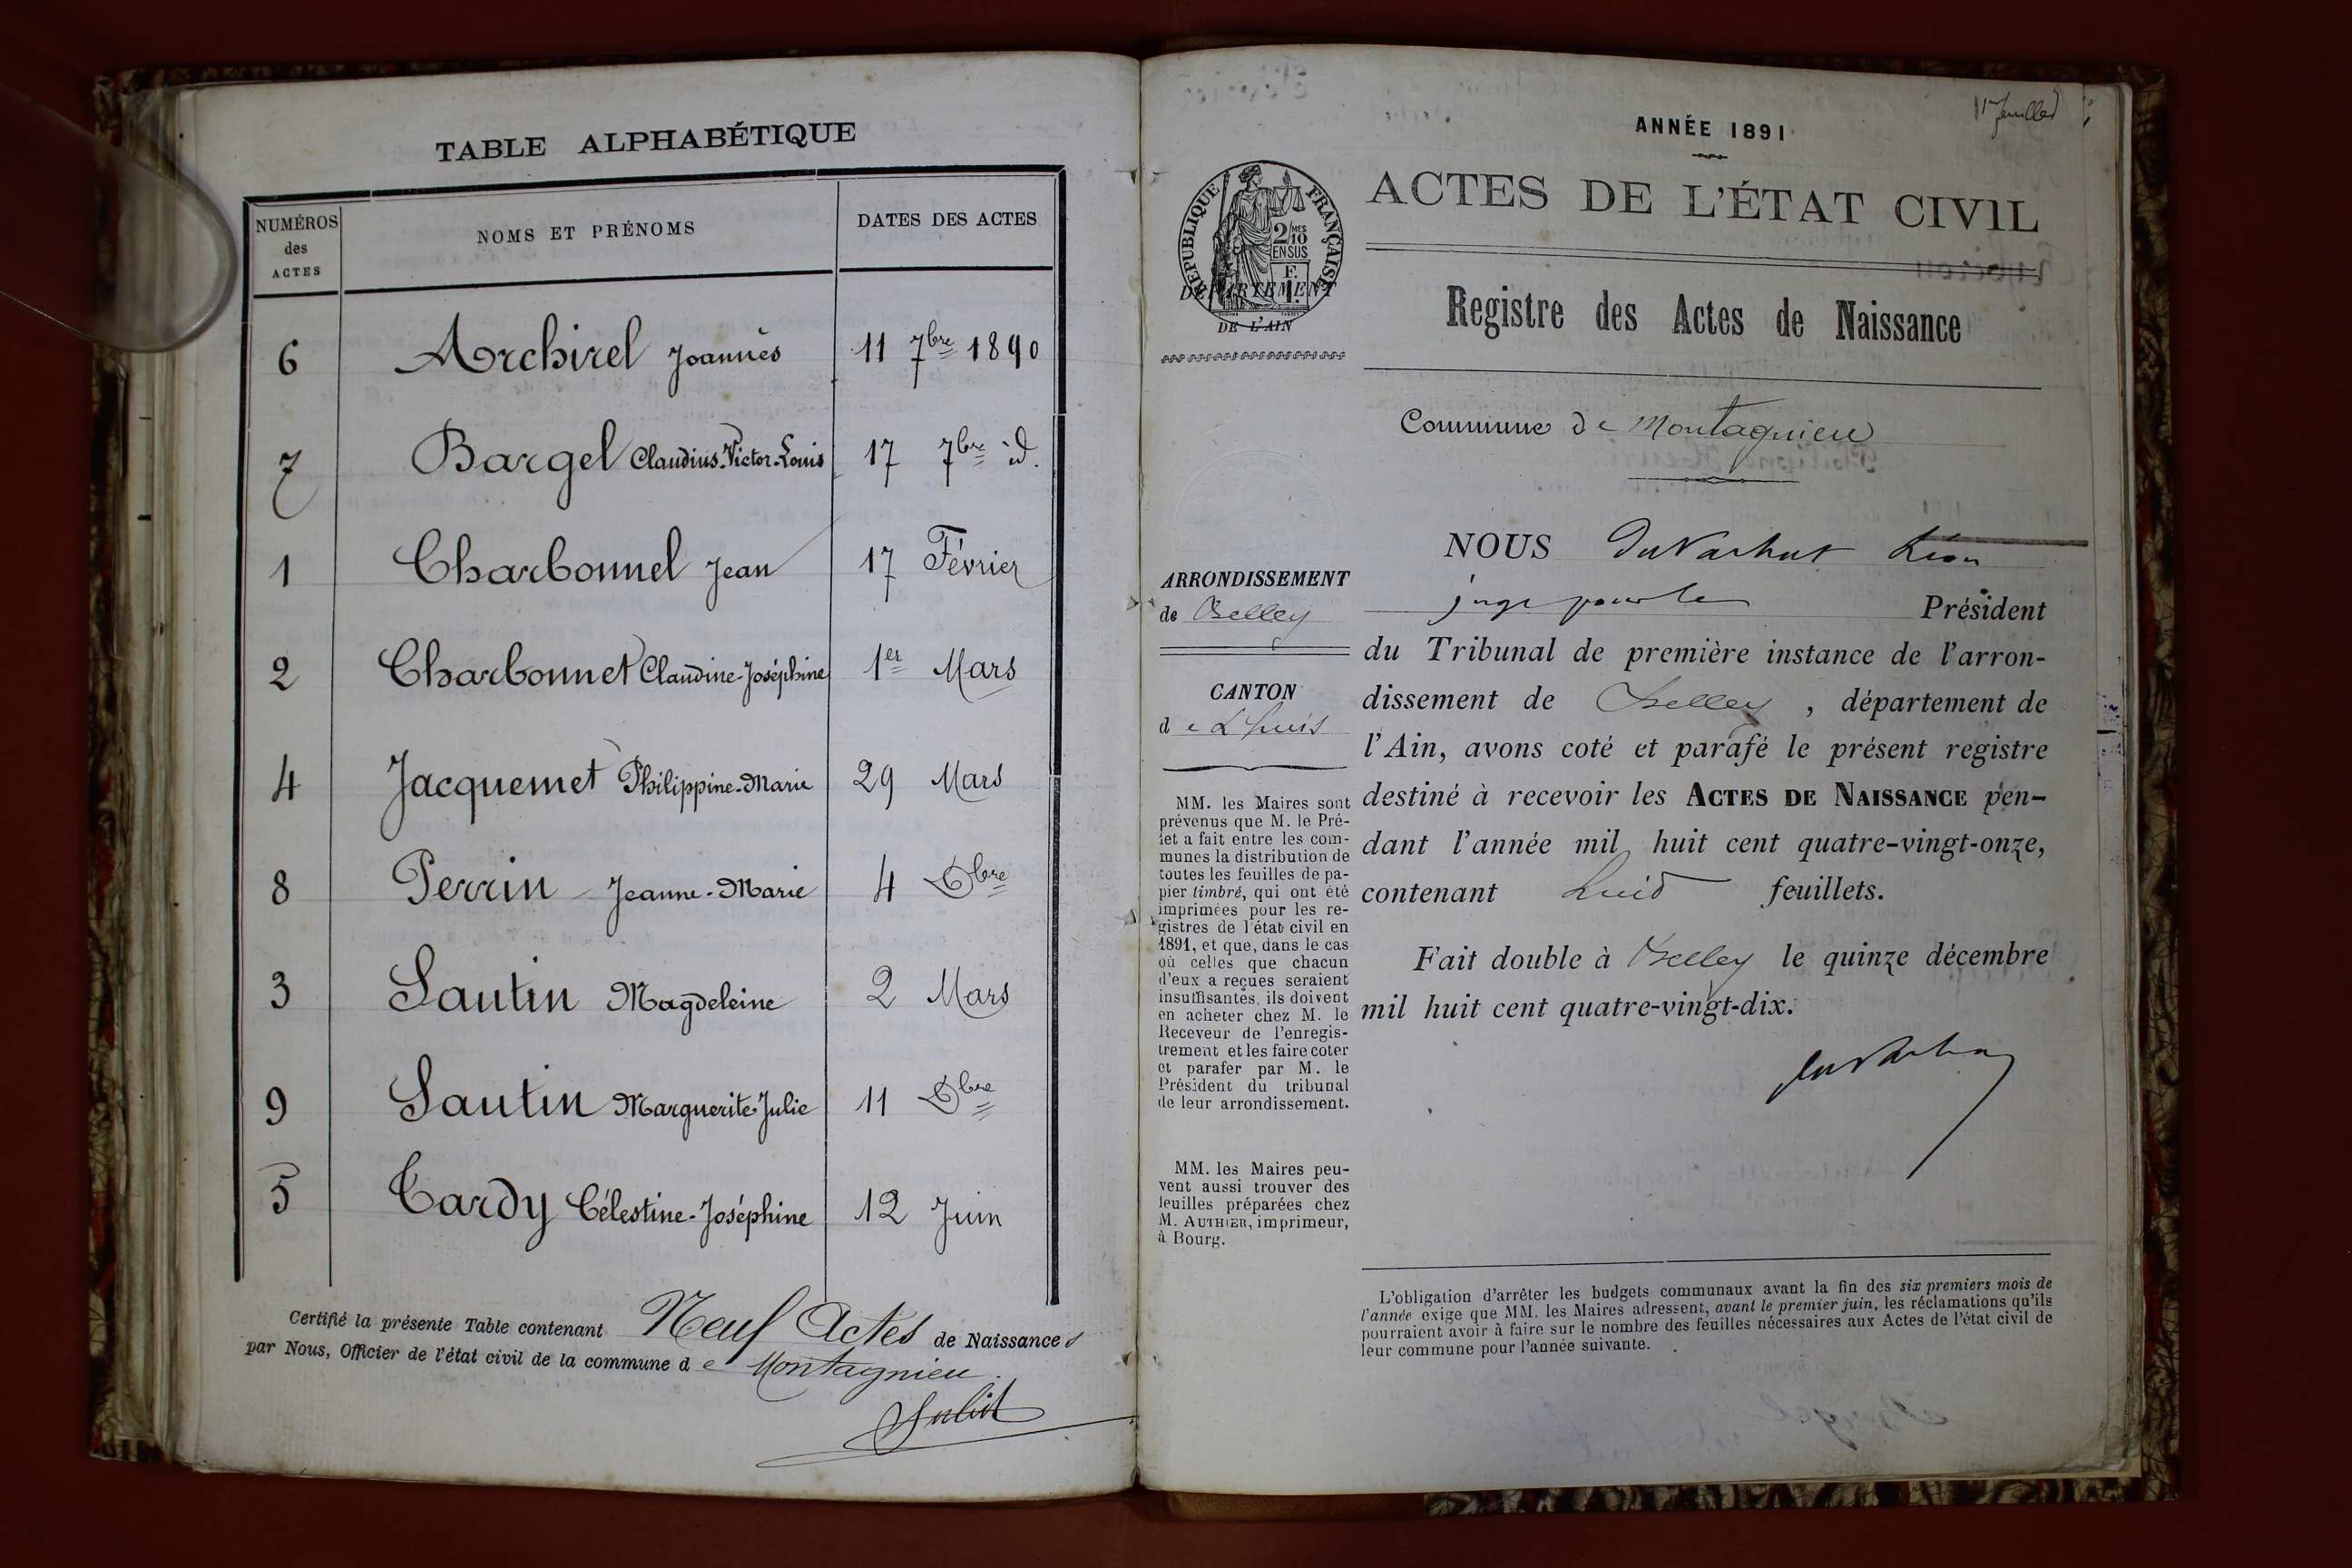 TABLE ALPHABÉTIQUE
NUMÉROS des ACTES NOMS ET PRÉNOMS DATES DES ACTES
6 Archirel Joannès 11 7bre 1890
7 Bargel Claudius-Victor-Louis 17 7bre id.
1 Charbonnel Jean 17 Février
2 Charbonnet Claudine-Joséphine 1er Mars
4 Jacquemet Philippine-Marie 29 Mars
8 Perrin Jeanne-Marie 4 Dbre
3 Sautin Magdeleine 2 Mars
9 Sautin Marguerite-Julie 11 Dbre
5 Tardy Célestine-Joséphine 12 Juin
Certifié la présente Table contenant Neuf Actes de Naissances
par Nous, Officier de l'état civil de la commune de Montagnieu.
1er feuillet
ANNÉE 1891
ACTES DE L'ÉTAT CIVIL
RÉPUBLIQUE FRANÇAISE
2/10 MES
EN SUS
DÉPARTEMENT
DE L'AIN
Registre des Actes de Naissance
Commune de Montagnieu
ARRONDISSEMENT
de Belley
CANTON
de Lhuis
MM. les Maires sont
prévenus que M. le Pré-
fet a fait entre les com-
munes la distribution de
toutes les feuilles de pa-
pier timbré, qui ont été
imprimées pour les re-
gistres de l'état civil en
1891, et que, dans le cas
où celles que chacun
d'eux a reçues seraient
insuffisantes, ils doivent
en acheter chez M. le
Receveur de l'enregis-
trement et les faire coter
et parafer par M. le
Président du tribunal
de leur arrondissement.
MM. les Maires peu-
vent aussi trouver des
feuilles préparées chez
M. AUTHIER, imprimeur,
à Bourg.
NOUS Léon
juge pour le Président
du Tribunal de première instance de l'arron-
dissement de Belley, département de
l'Ain, avons coté et parafé le présent registre
destiné à recevoir les ACTES DE NAISSANCE pen-
dant l'année mil huit cent quatre-vingt-onze,
contenant huit feuillets.
Fait double à Belley le quinze décembre
mil huit cent quatre-vingt-dix.
L'obligation d'arrêter les budgets communaux avant la fin des six premiers mois de
l'année exige que MM. les Maires adressent, avant le premier juin, les réclamations qu'ils
pourraient avoir à faire sur le nombre des feuilles nécessaires aux Actes de l'état civil de
leur commune pour l'année suivante.